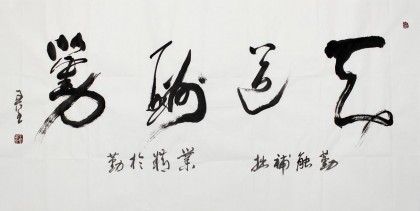 天道酬勤
勤能補拙 業精於勤